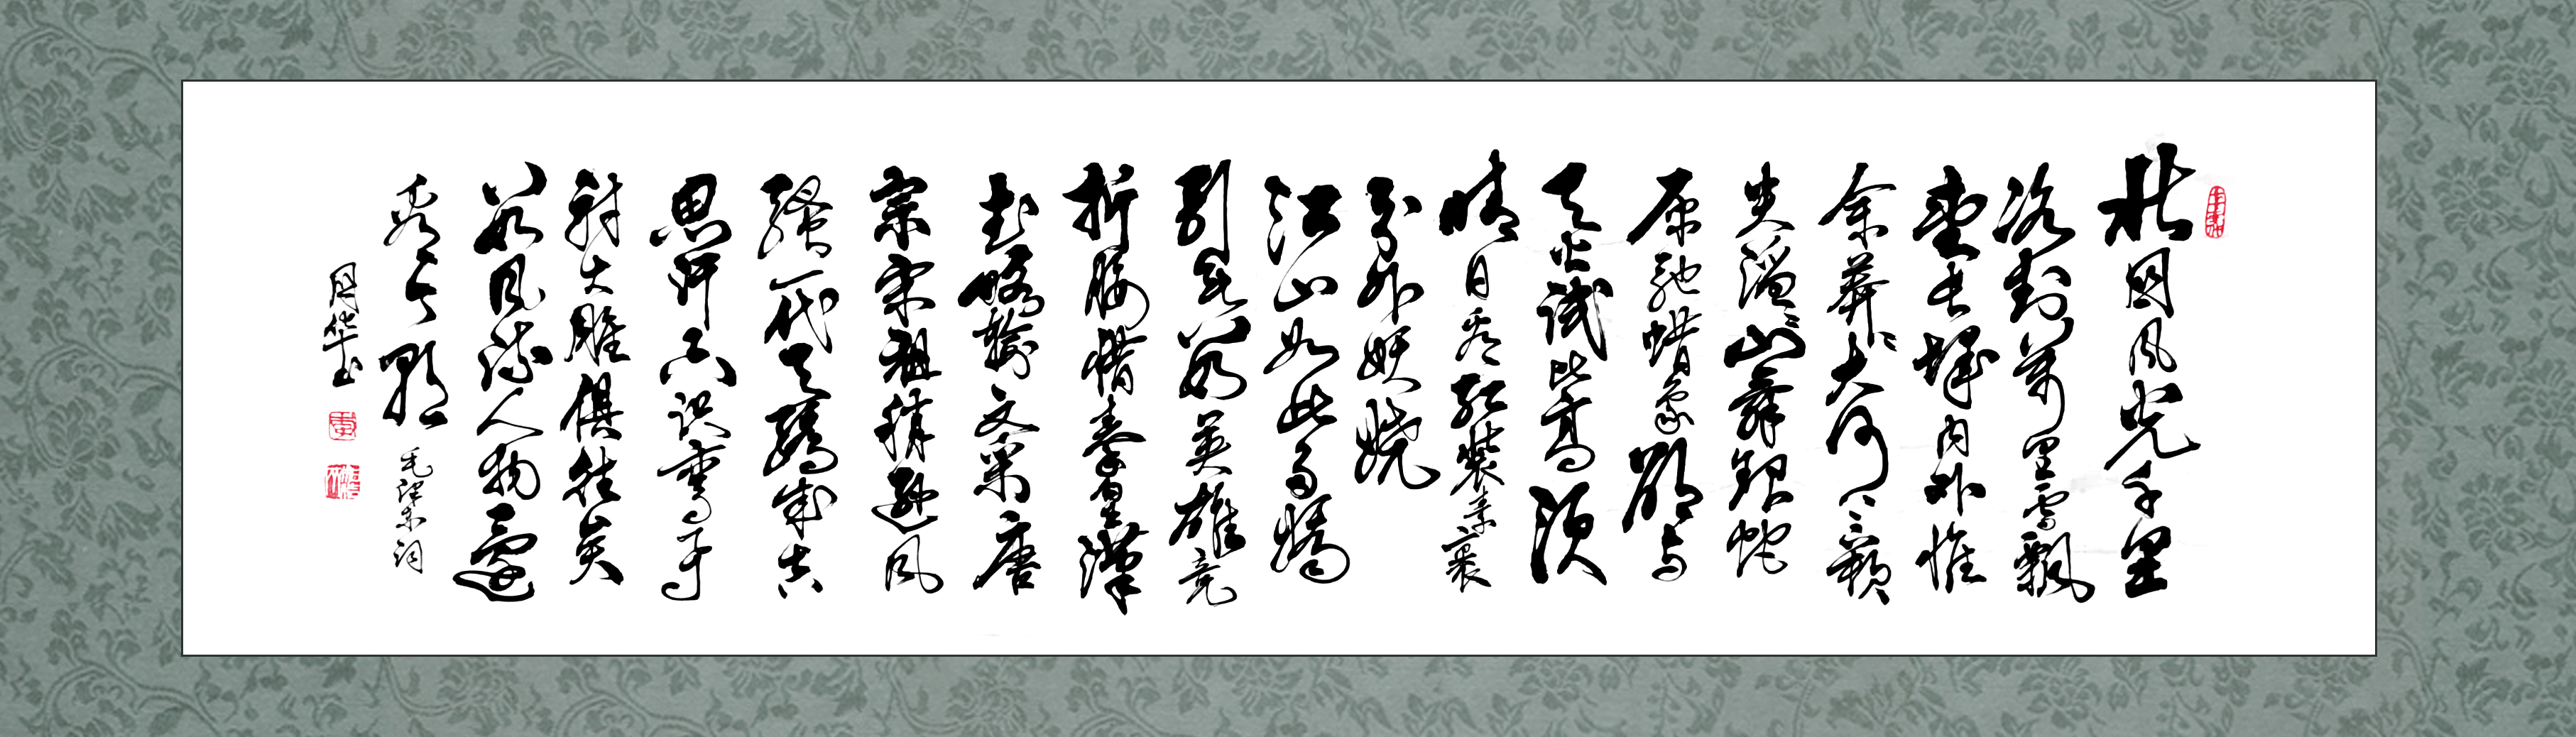 北国风光千里
冰封万里雪飘
望长城内外惟
余莽莽大河上下顿
失滔滔山舞银蛇
原驰蜡象欲与
天公试比高须
晴日看红装素裹
分外妖娆
江山如此多娇
引无数英雄竞
折腰惜秦皇汉
武略输文采唐
宗宋祖稍逊风
骚一代天骄成吉
思汗只识弯弓
射大雕俱往矣
数风流人物还
看今朝
毛泽东词